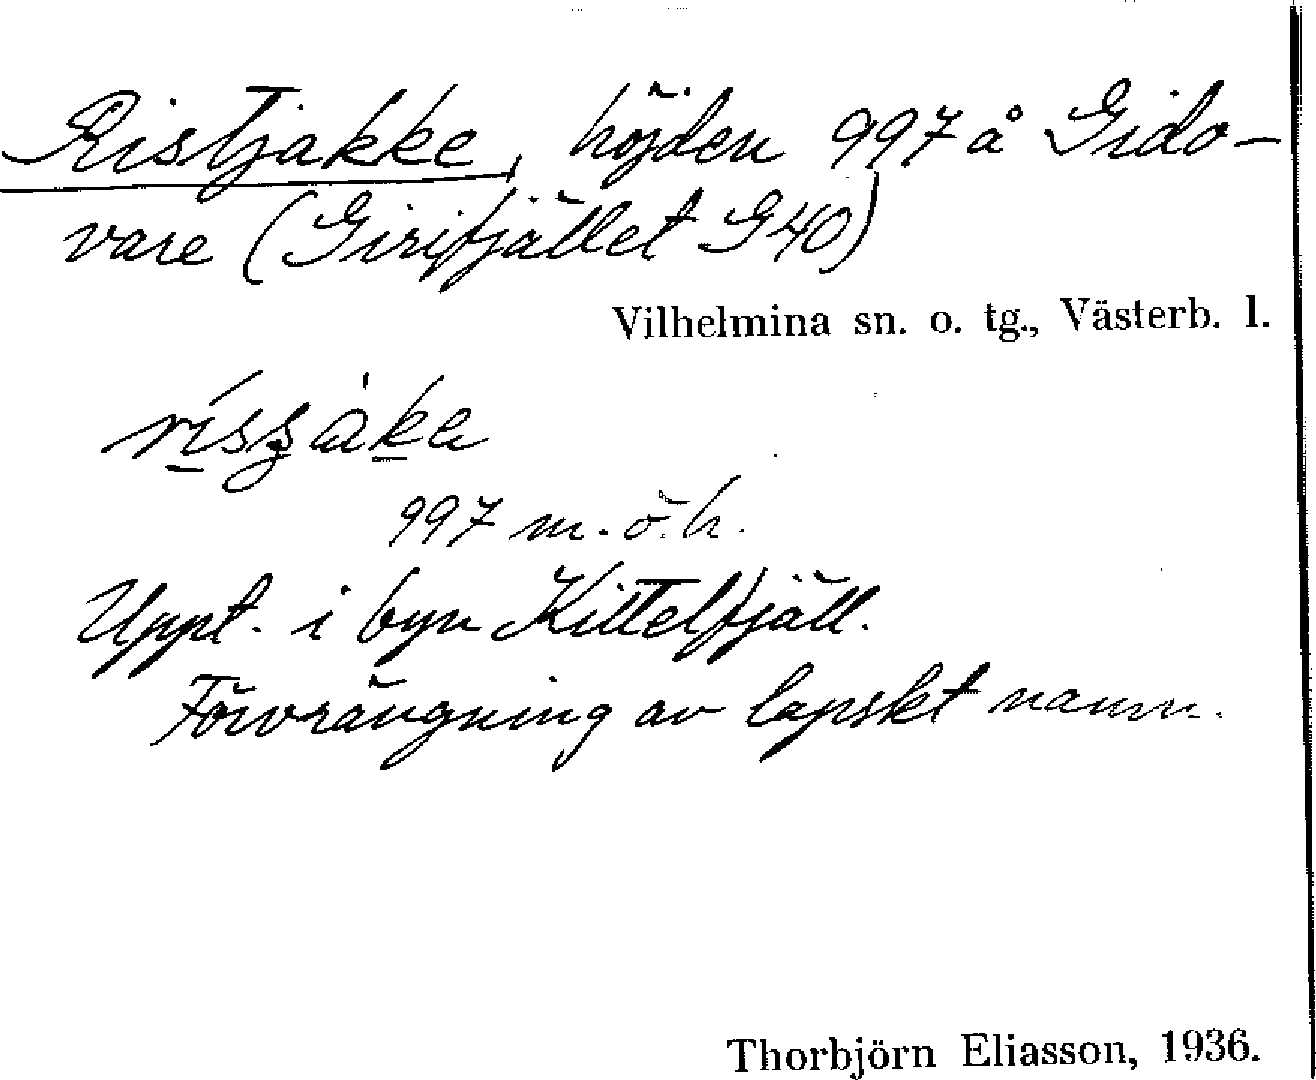 Ristjakke, höjden 997 å Gido-
vare (Girifjället G40)
Vilhelmina sn. o. tg., Västerb. l.
997 m.ö.h.
Uppt. i byn Kittelfjäll.
Förvrängning av lapskt namn.
Thorbjörn Eliasson, 1936.